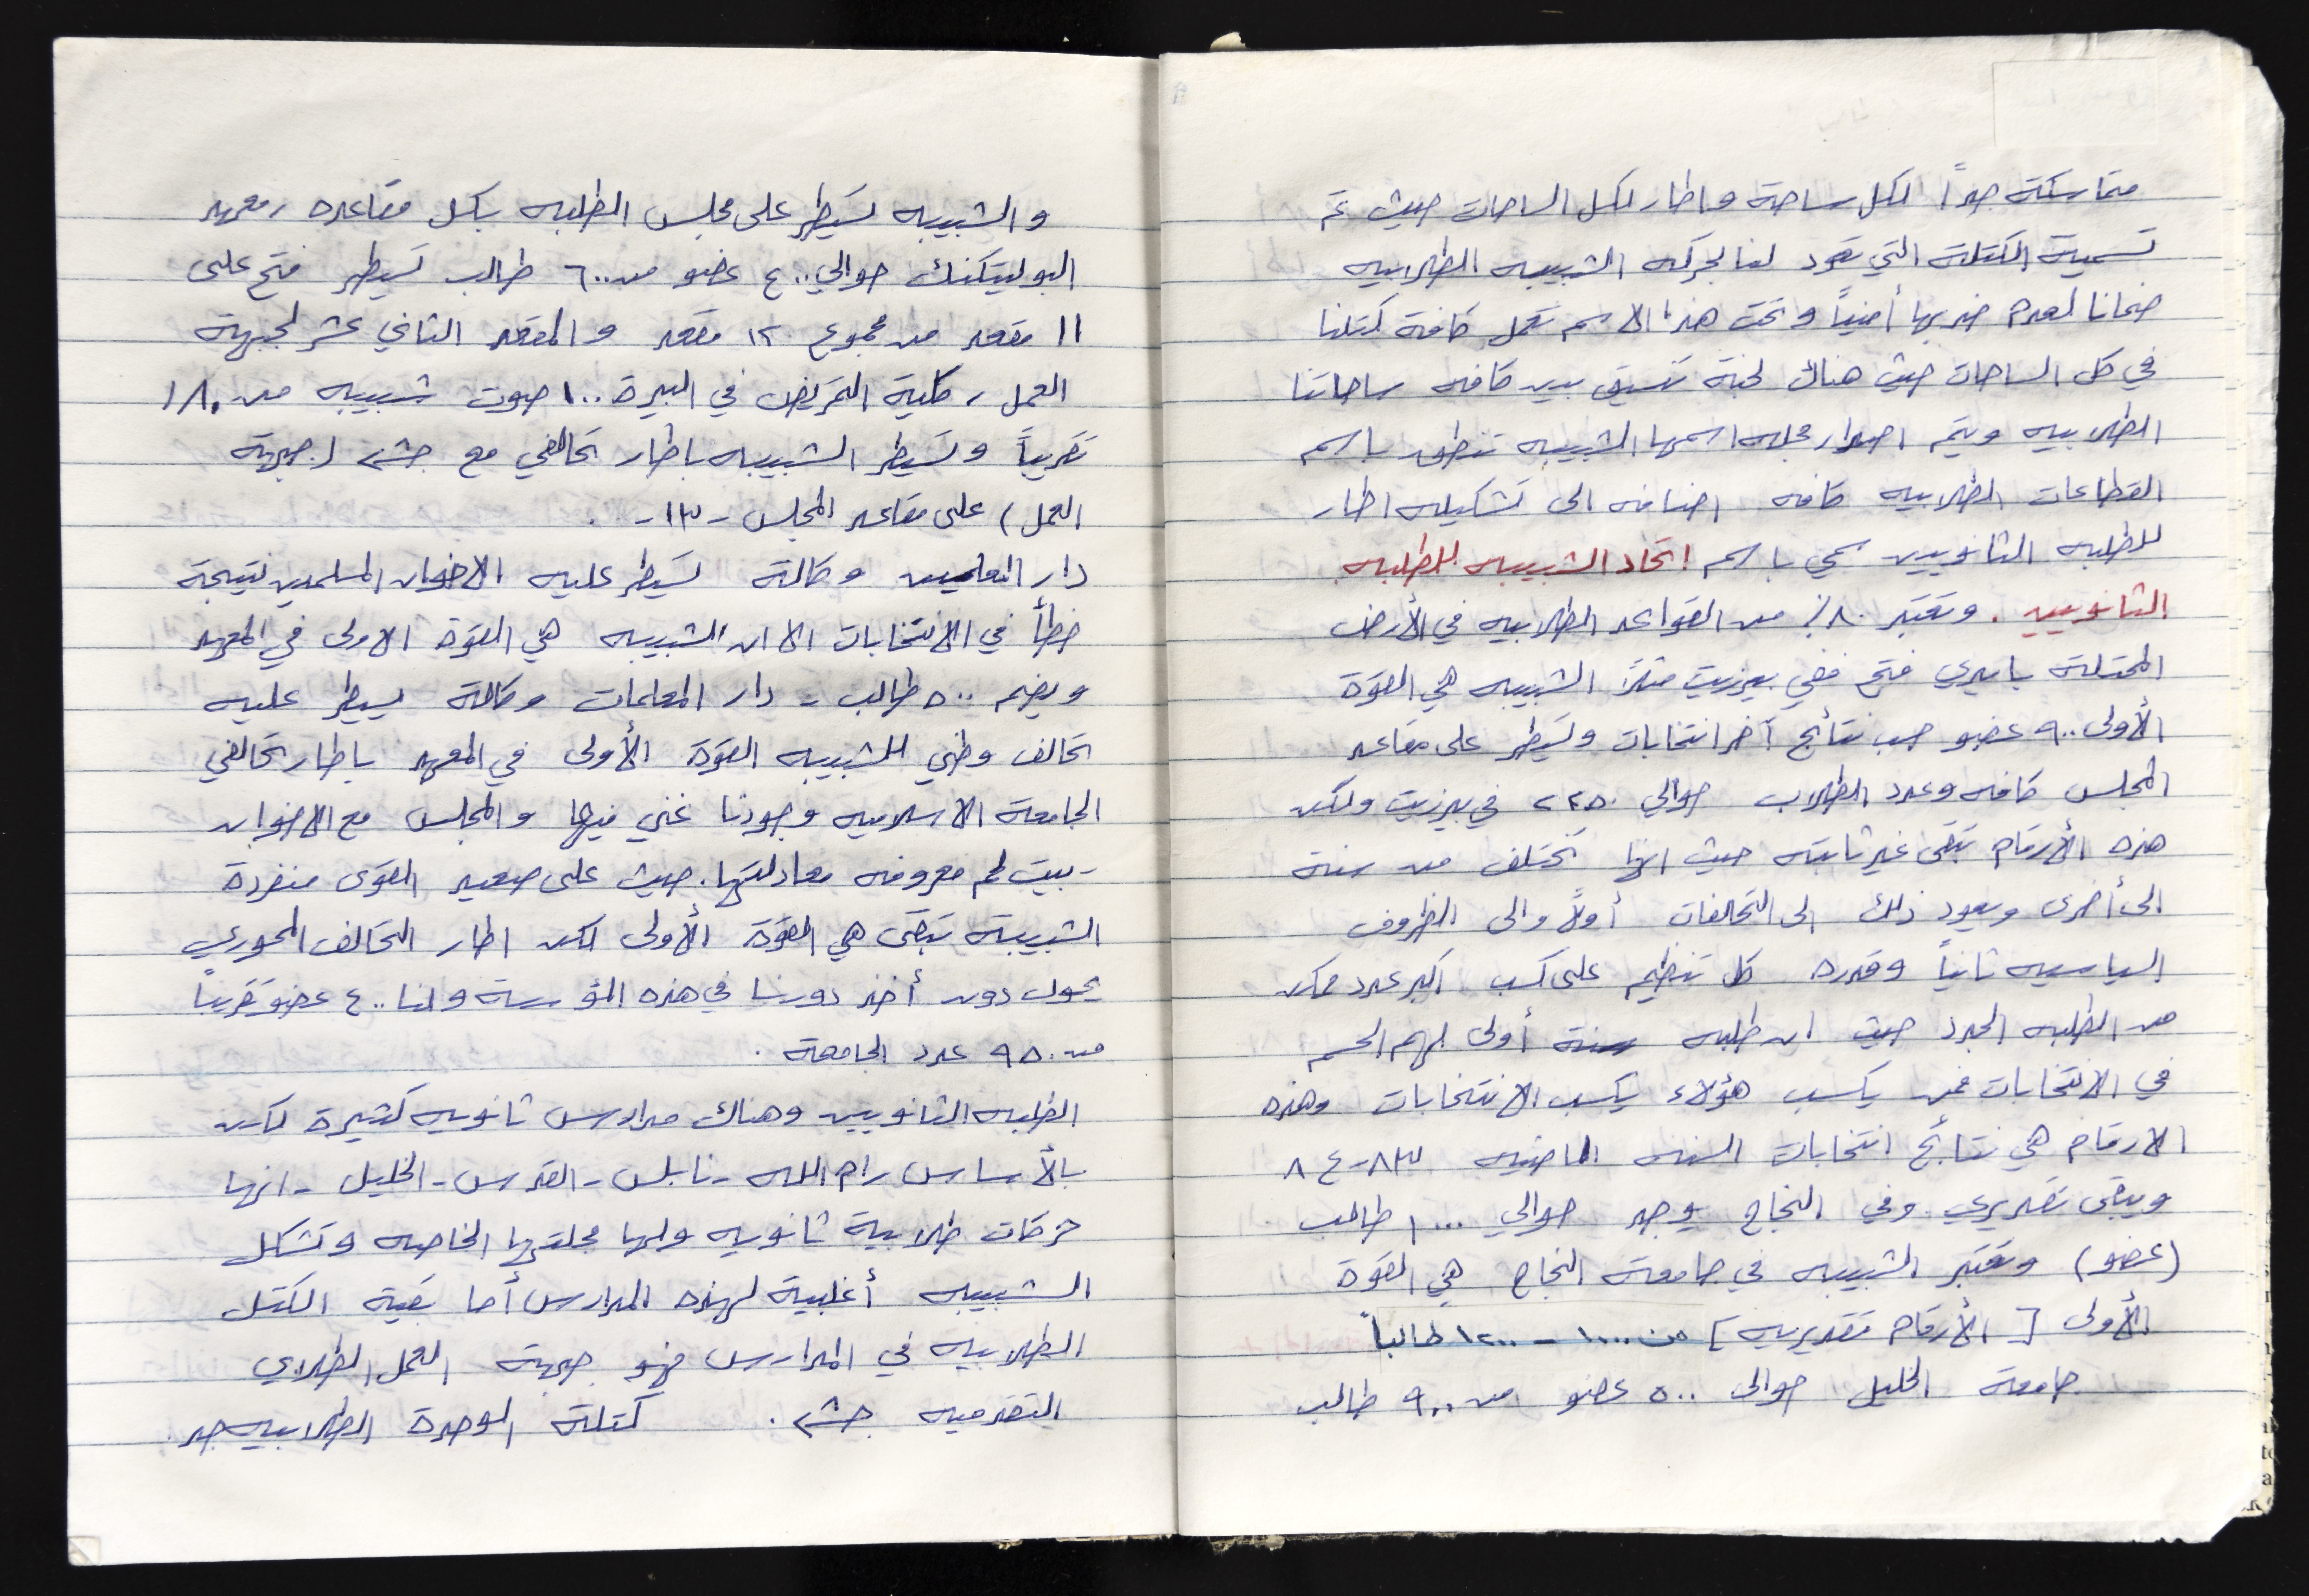 متماسكة جداً لكل ساحة واطار لكل الساحات حيث تم
تسمية الكتلة التي تعود لنا بحركه الشبيبه الطلابيه
ضمانا لعدم ضربها أمنياً وتحت هذا الاسم تعمل كافة كتلنا
في كل الساحات حيث هناك لجنة تنسيق بين كافه ساحاتنا
الطلابيه ويتم اصدار مجله اسمها الشبيبه تنطق باسم
القطاعات الطلابيه كافه اضافه الى تشكيله اطار
للطلبه الثانويين سمي باسم اتحاد الشبيبه للطلبه
الثانويين . وتعتبر ٨٠٪ من القواعد الطلابيه في الأرض
المحتلة بايدي فتح ففي بيرزيت مثلاً الشبيبه هي القوة
الأولى ٩٠٠ عضو حسب نتائج آخر انتخابات وتسيطر على مقاعد
المجلس كافه وعدد الطلاب حوالي ٢٢٥٠ في بيرزيت ولكن
هذه الأرقام تبقى غير ثابته حيث انها تختلف من سنة
الى أخرى ويعود ذلك الى التحالفات أولاً والى الظروف
السياسيه ثانياً وقدره كل تنظيم على كسب اكبر عدد ممكن
من الطلبه الجدد حيث ان طلبه سنة أولى لهم الحسم
في الانتخابات فمن يكسب هؤلاء يكسب الانتخابات وهذه
الارقام هي نتائج انتخابات السنه الماضيه ٨٣-٨٤
ويبقى تقديري. وفي النجاح يوجد حوالي ١٠٠٠ طالب
(عضو) وتعتبر الشبيبه في جامعة النجاح هي القوة
الأولى [الأرقام تقديريه] من ١٠٠٠ - ١٢٠٠ طالباً
جامعة الخليل حوالي ٥٠٠ عضو من ٩٠٠ طالب
والشبيبه تسيطر على مجلس الطلبه بكل مقاعده ، معهد
البوليتكنك حوالي ٤٠٠ عضو من ٦٠٠ طالب تسيطر فتح على
١١ مقعد من مجموع ١٢ مقعد والمقعد الثاني عشر لجبهة
العمل ، كلية التمريض في البيرة ١٠٠ صوت شبيبه من ١٨٠
تقريباً وتسيطر الشبيبه باطار تحالفي مع جشع (جبهة
العمل) على مقاعد المجلس -١٣- .
دار المعلمين وكالة تسيطر عليه الاخوان المسلمين نتيجة
خطأ في الانتخابات الا ان الشبيبه هي القوة الاولى في المعهد
ويضم ٥٠٠ طالب - دار المعلمات وكالة يسيطر عليه
تحالف وطني للشبيبه القوة الأولى في المعهد باطار تحالفي
الجامعة الاسلاميه وجودنا غني فيها والمجلس مع الاخوان
- بيت لحم معروفه معادلتها. حيث على صعيد القوى منفردة
الشبيبة تبقى هي القوة الأولى لكن اطار التحالف المحوري
يحول دون أخذ دورنا في هذه المؤسسة ولنا ٤٠٠ عضو تقريباً
من ٩٥٠ عدد الجامعة .
الطلبه الثانويين وهناك مدارس ثانويه كثيرة لكن
بالأساس رام الله - نابلس - القدس - الخليل - انها
حركات طلابية ثانويه ولها مجلتها الخاصه وتشكل
الشبيبه أغلبية لهذه المدارس أما بقية الكتل
الطلابيه في المدارس فهو جبهة العمل الطلابي
التقدميه جشع . كتلة الوحدة الطلابيه جد.